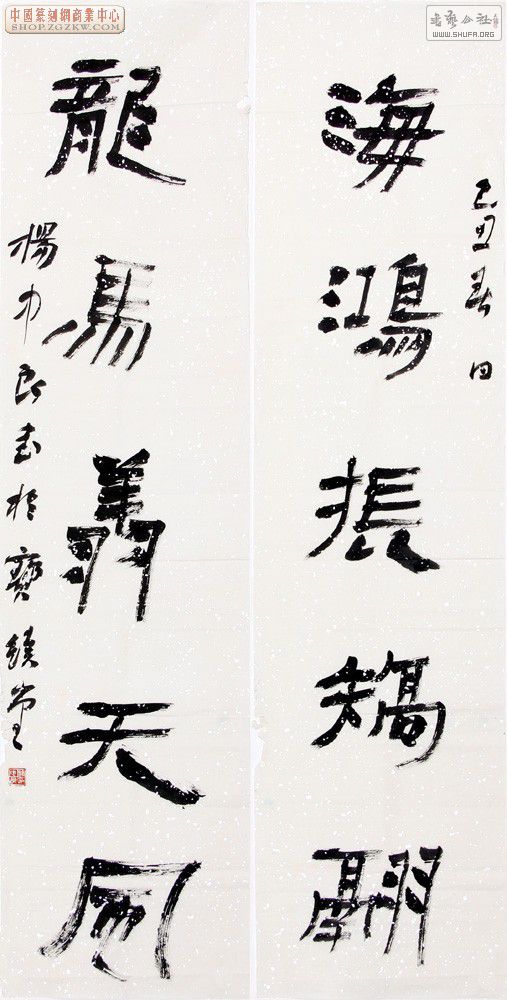 中國篆刻網商業中心
SHOP.ZGZKW.COM
書藝公社
WWW.SHUFA.ORG
己丑春日
海鴻振矯翮
龍馬翔天風
楊中良書於寶堂